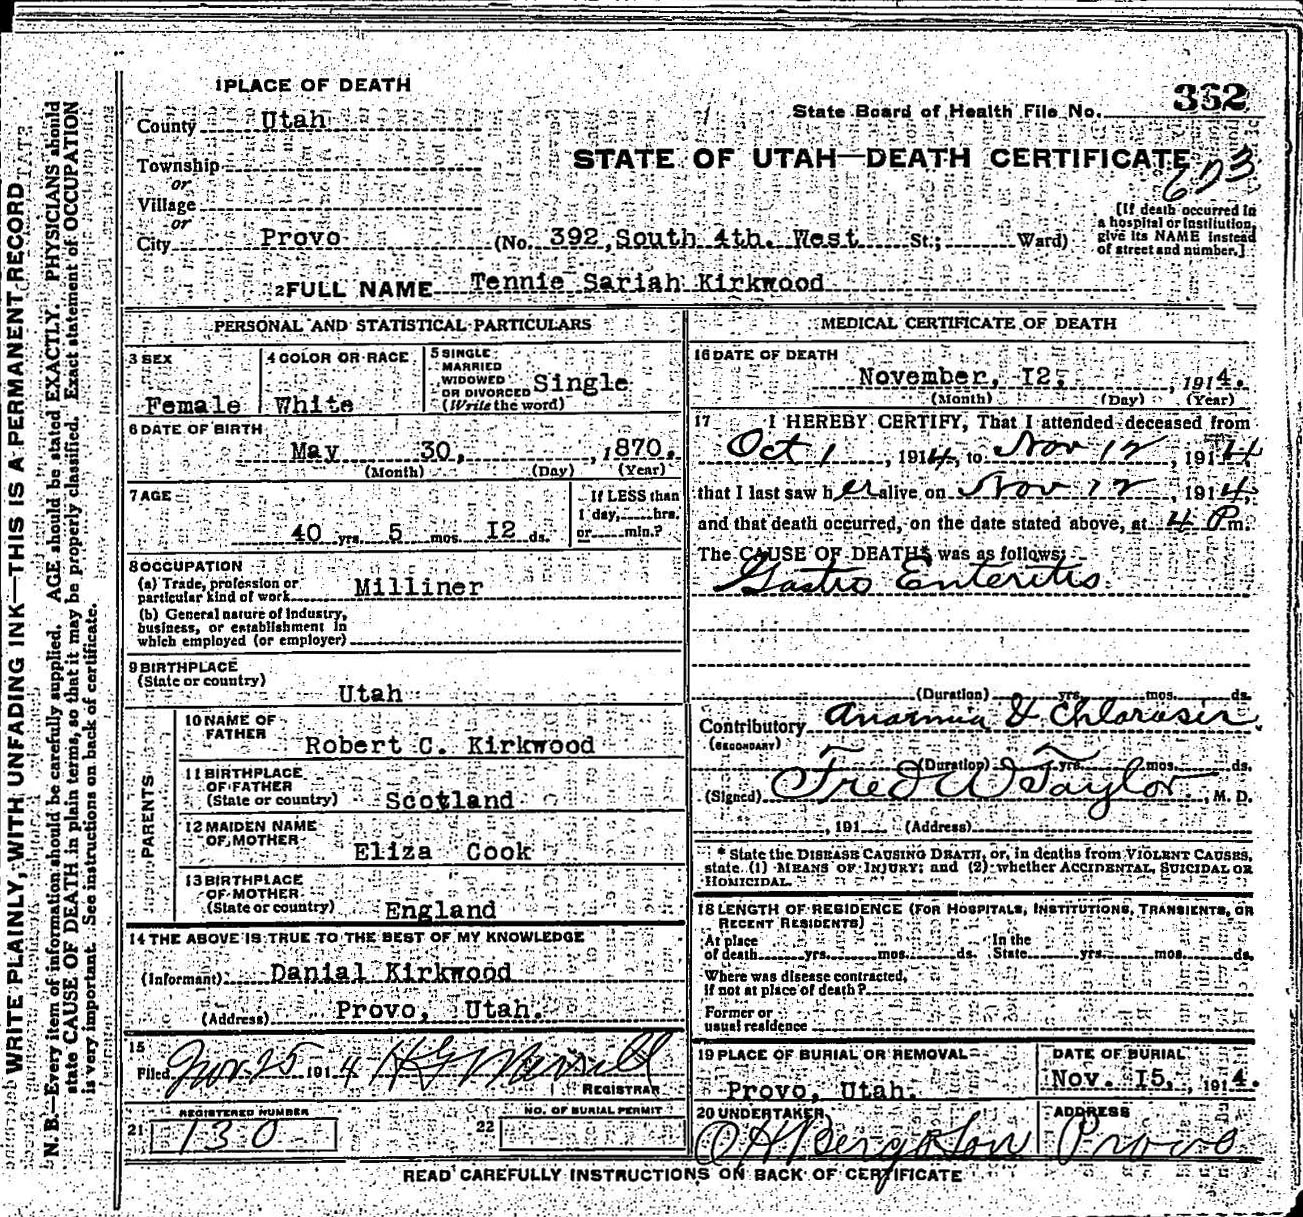 1 PLACE OF DEATH
County Utah
Township
or
Village
or
City Provo (No. 392, South 4th. West St.; Ward)
State Board of Health File No. 362
STATE OF UTAH—DEATH CERTIFICATE
[If death occurred in
a hospital or institution,
give its NAME instead
of street and number.]
2 FULL NAME Tennie Sariah Kirkwood
PERSONAL AND STATISTICAL PARTICULARS
3 SEX
Female
4 COLOR OR RACE
White
5 SINGLE
MARRIED
WIDOWED
OR DIVORCED
(Write the word)
Single
6 DATE OF BIRTH
May 30, 1870.
(Month) (Day) (Year)
7 AGE
40 yrs. 5 mos. I2 ds.
If LESS than
1 day, hrs.
or min.?
8 OCCUPATION
(a) Trade, profession or
particular kind of work Milliner
(b) General nature of industry,
business, or establishment in
which employed (or employer)
9 BIRTHPLACE
(State or country)
Utah
PARENTS
10 NAME OF
FATHER
Robert C. Kirkwood
11 BIRTHPLACE
OF FATHER
(State or country) Scotland
12 MAIDEN NAME
OF MOTHER
Eliza Cook
13 BIRTHPLACE
OF MOTHER
(State or country) England
14 THE ABOVE IS TRUE TO THE BEST OF MY KNOWLEDGE
(Informant) Danial Kirkwood
(Address) Provo, Utah.
15
Filed Nov. 25 1914 H G Merrill
REGISTRAR
REGISTERED NUMBER
21 130
NO. OF BURIAL PERMIT
22
MEDICAL CERTIFICATE OF DEATH
16 DATE OF DEATH
November, I2, , 1914.
(Month) (Day) (Year)
17 I HEREBY CERTIFY, That I attended deceased from
Oct 1, 1914, to Nov 12, 1914
that I last saw her alive on Nov 12, 1914,
and that death occurred, on the date stated above, at 4 P m.
The CAUSE OF DEATH* was as follows:
Gastro Enteritis
(Duration) yrs. mos. ds.
Contributory Anaemia & Chlorosis
(SECONDARY)
(Duration) yrs. mos. ds.
(Signed) Fred W Taylor, M. D.
, 191 (Address)
* State the DISEASE CAUSING DEATH, or, in deaths from VIOLENT CAUSES,
state (1) MEANS OF INJURY; and (2) whether ACCIDENTAL, SUICIDAL OR
HOMICIDAL.
18 LENGTH OF RESIDENCE (FOR HOSPITALS, INSTITUTIONS, TRANSIENTS, OR
RECENT RESIDENTS)
At place
of death yrs. mos. ds.
In the
State yrs. mos. ds.
Where was disease contracted,
if not at place of death?
Former or
usual residence
19 PLACE OF BURIAL OR REMOVAL
Provo, Utah.
DATE OF BURIAL
Nov. I5, , 1914.
20 UNDERTAKER
O H Berg & Son
ADDRESS
Provo
READ CAREFULLY INSTRUCTIONS ON BACK OF CERTIFICATE
WRITE PLAINLY, WITH UNFADING INK—THIS IS A PERMANENT RECORD
N. B.—Every item of information should be carefully supplied. AGE should be stated EXACTLY. PHYSICIANS should
state CAUSE OF DEATH in plain terms, so that it may be properly classified. Exact statement of OCCUPATION
is very important. See instructions on back of certificate.